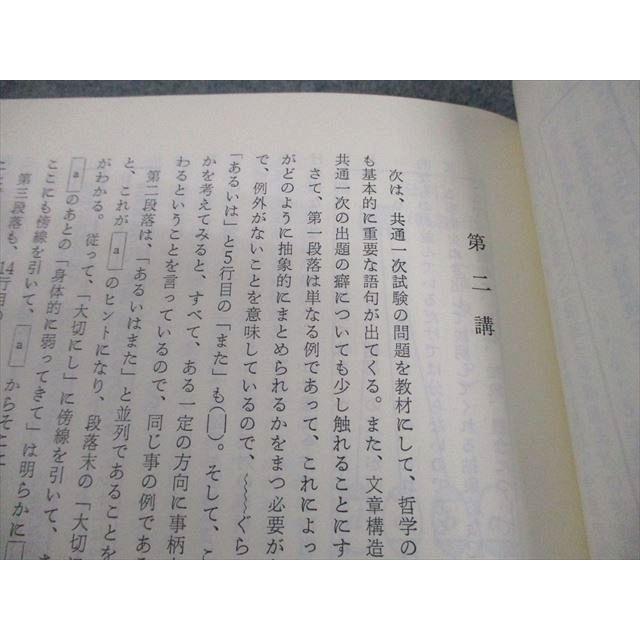 第二講
次は、共通一次試験の問題を教材にして、哲学の
も基本的に重要な語句が出てくる。また、文章構造
共通一次の出題の癖についても少し触れることにす
さて、第一段落は単なる例であって、これによっ
がどのように抽象的にまとめられるかをまつ必要が
で、例外がないことを意味しているので、〜〜〜ぐら
「あるいは」と5行目の「また」も(□)。そして、こ
かを考えてみると、すべて、ある一定の方向に事柄
わるということを言っているので、同じ事の例であ
第二段落は、「あるいはまた」と並列であることを
と、これが a のヒントになり、段落末の「大切に
がわかる。従って、「大切にし」に傍線を引いて、
a のあとの「身体的に弱ってきて」は明らかに
ここにも傍線を引いて、 a からそこ
第三段落も、14行目の